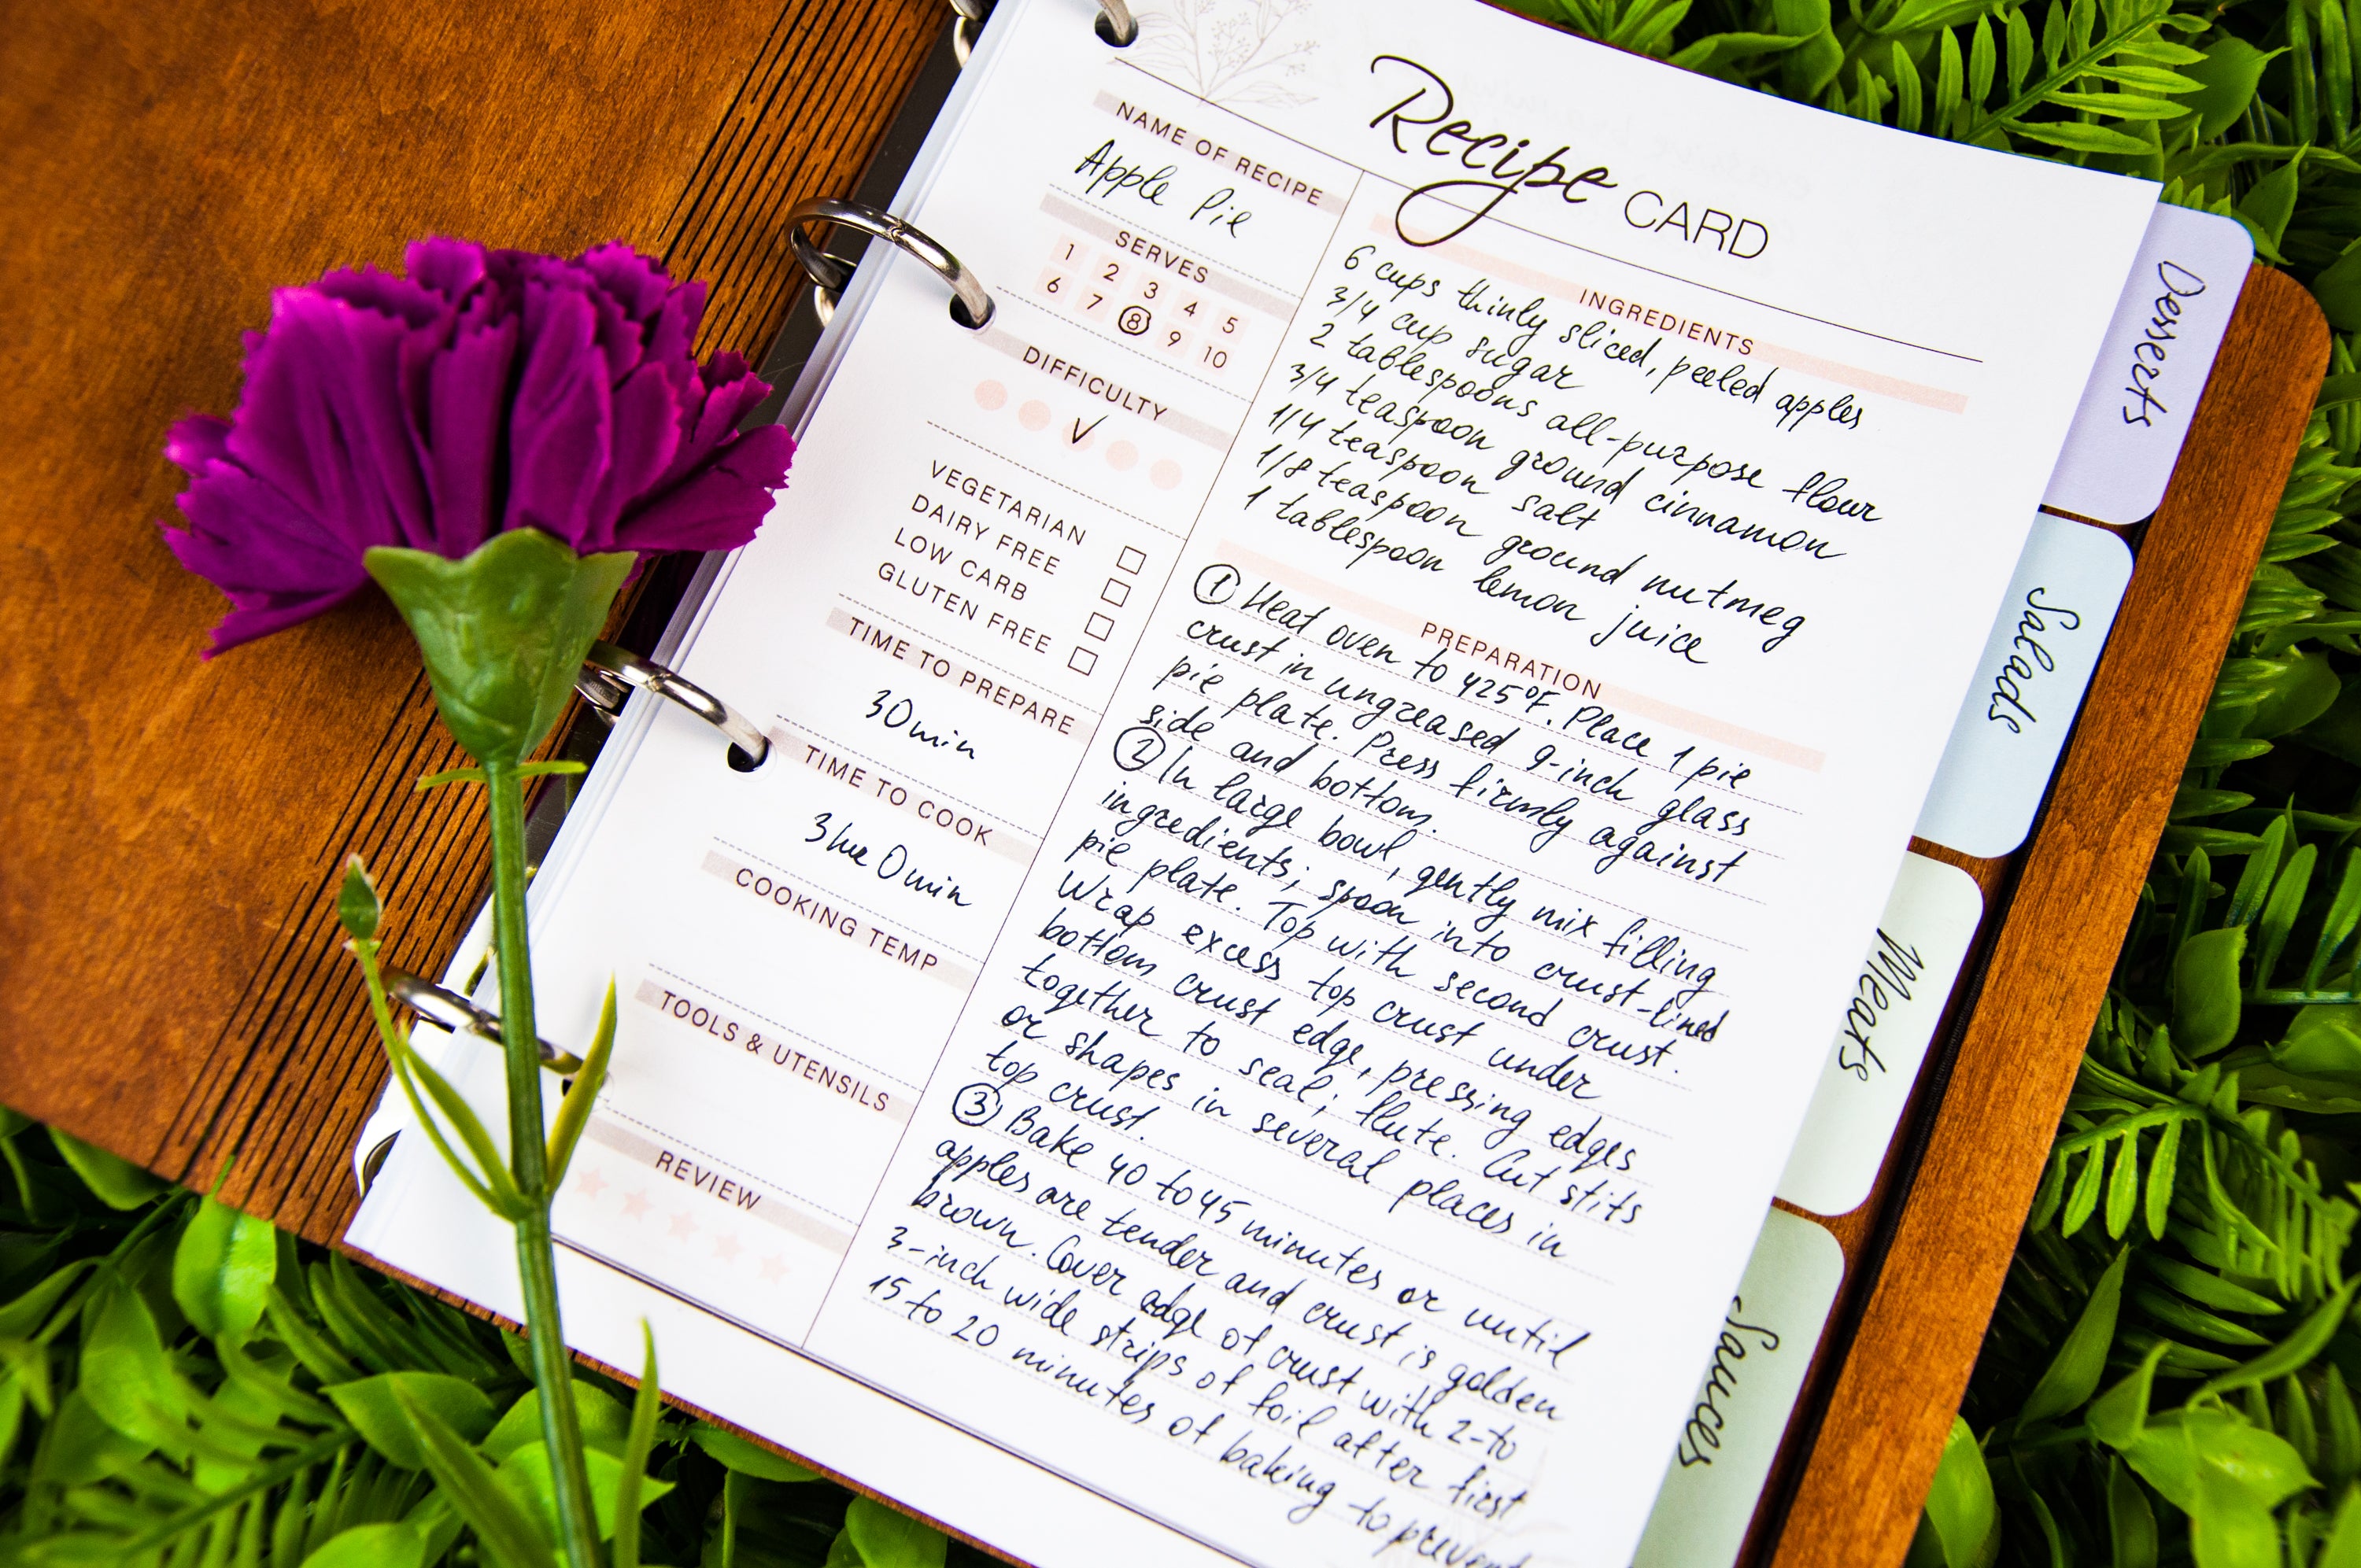 Recipe CARD
NAME OF RECIPE
Apple Pie
SERVES
1 2 3 4 5
6 7 8 9 10
DIFFICULTY
VEGETARIAN
DAIRY FREE
LOW CARB
GLUTEN FREE
TIME TO PREPARE
30 min
TIME TO COOK
3 hr 0 min
COOKING TEMP
TOOLS & UTENSILS
REVIEW
INGREDIENTS
6 cups thinly sliced, peeled apples
3/4 cup sugar
2 tablespoons all-purpose flour
3/4 teaspoon ground cinnamon
1/4 teaspoon salt
1/8 teaspoon ground nutmeg
1 tablespoon lemon juice
PREPARATION
① Heat oven to 425°F. Place 1 pie
crust in ungreased 9-inch glass
pie plate. Press firmly against
side and bottom.
② In large bowl, gently mix filling
ingredients; spoon into crust-lined
pie plate. Top with second crust.
Wrap excess top crust under
bottom crust edge, pressing edges
together to seal; flute. Cut slits
or shapes in several places in
top crust.
③ Bake 40 to 45 minutes or until
apples are tender and crust is golden
brown. Cover edge of crust with 2-to
3-inch wide strips of foil after first
15 to 20 minutes of baking to prevent
Desserts
Salads
Meats
Sauces